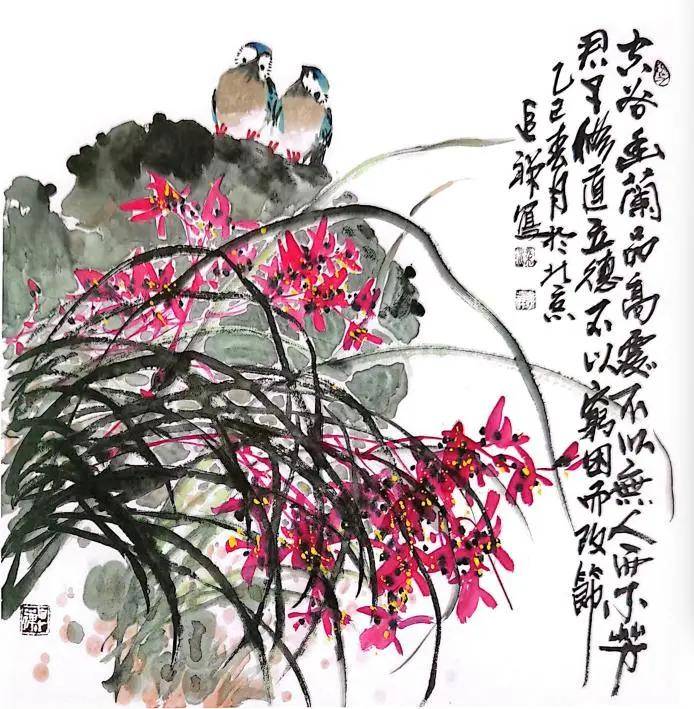 空谷幽蘭品高不以無人而不芳
君子修道立德不以窮困而改節
乙巳春月於北京
祥寫